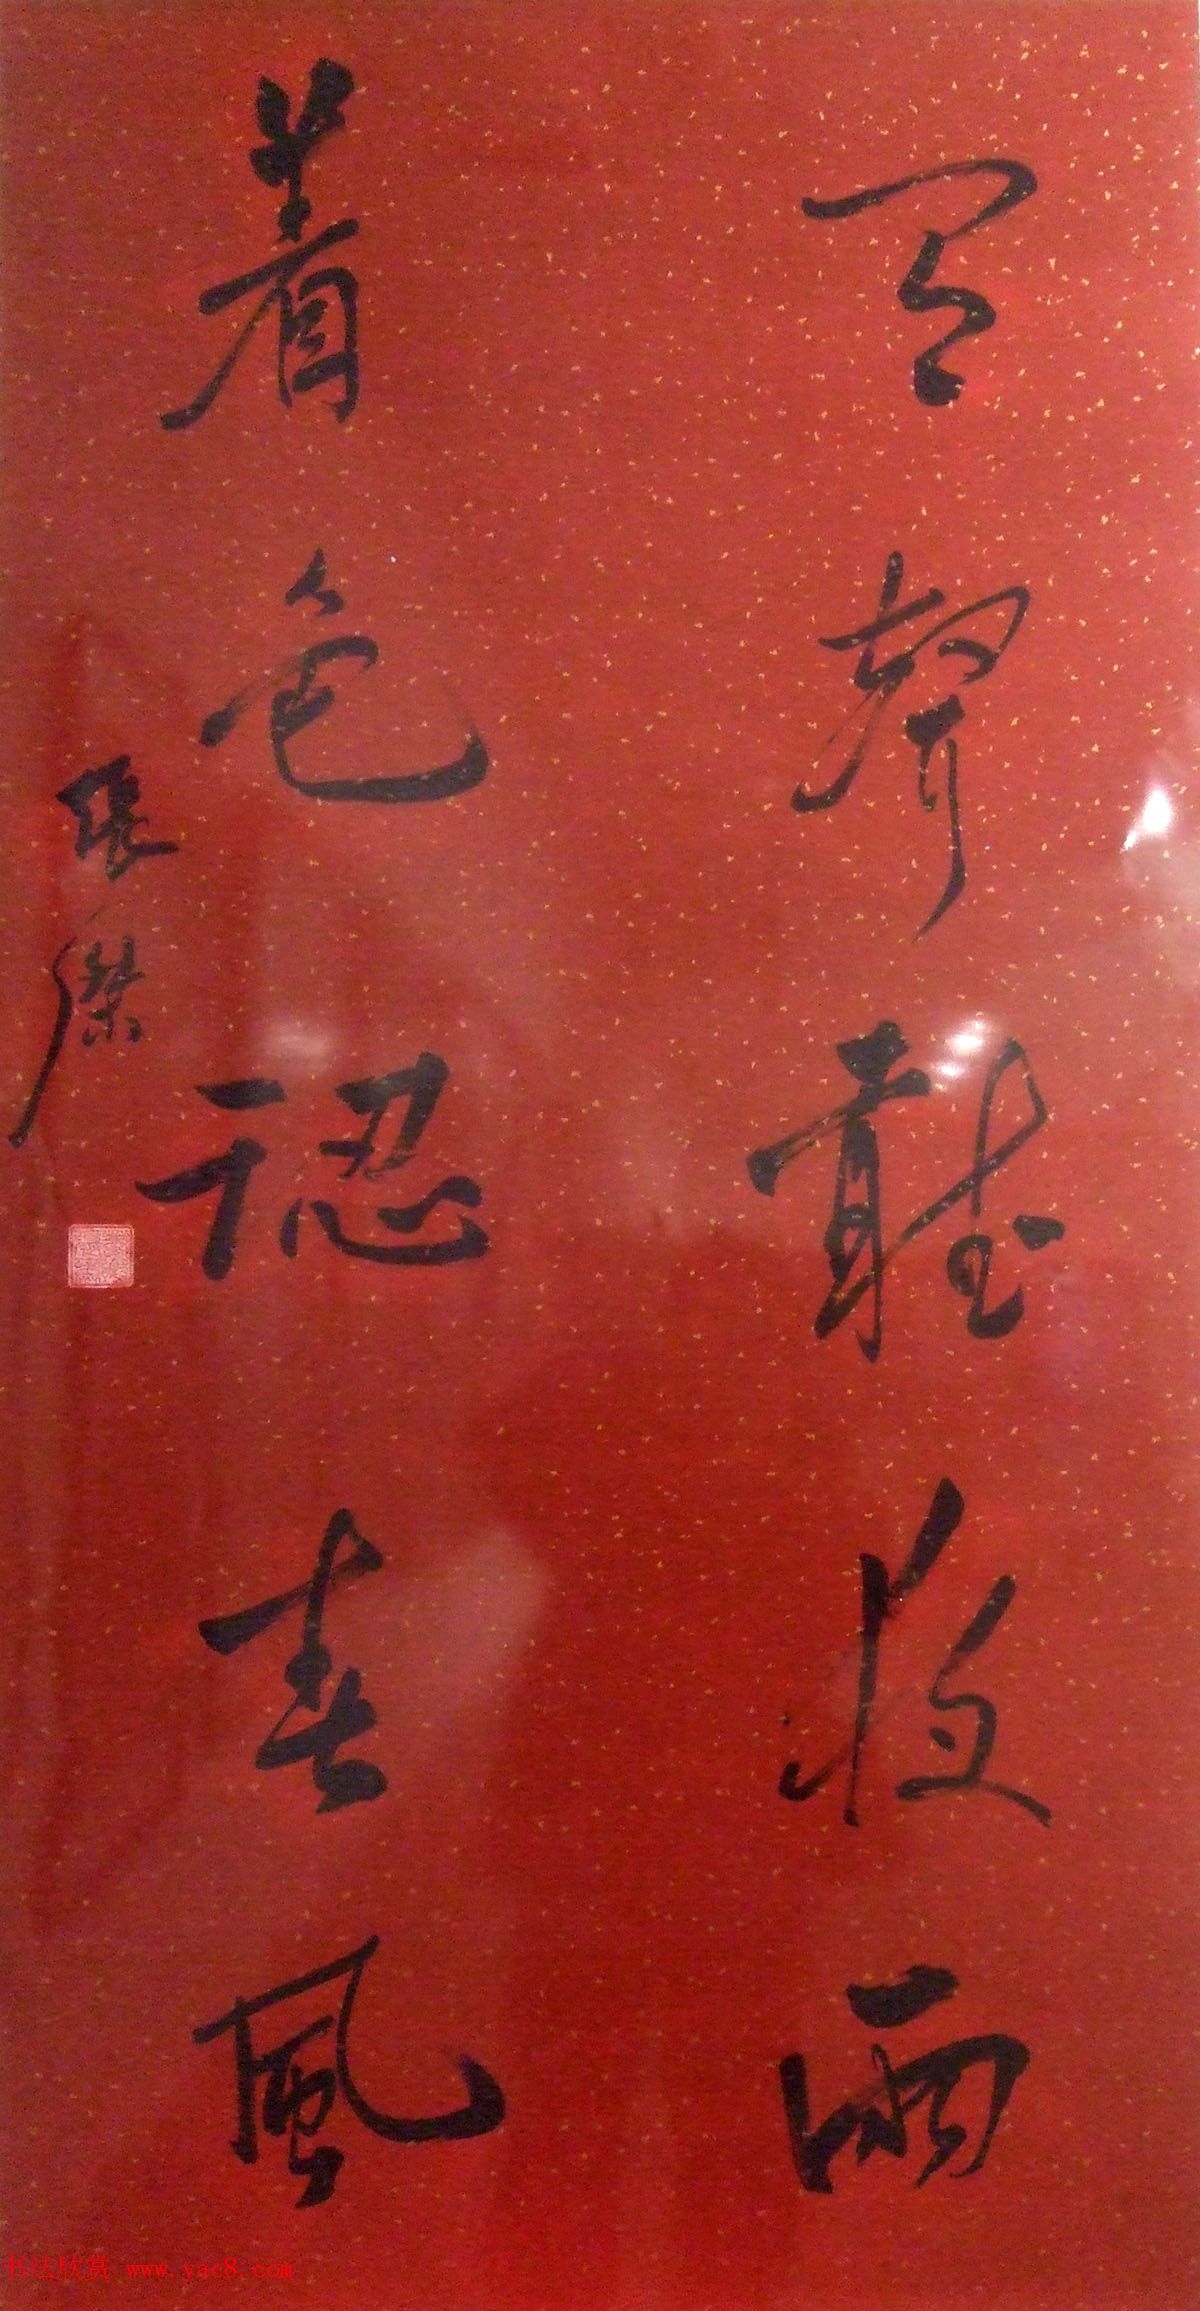 聲聽夜雨
着色認春風
張傑
书法欣赏 www.yac8.com